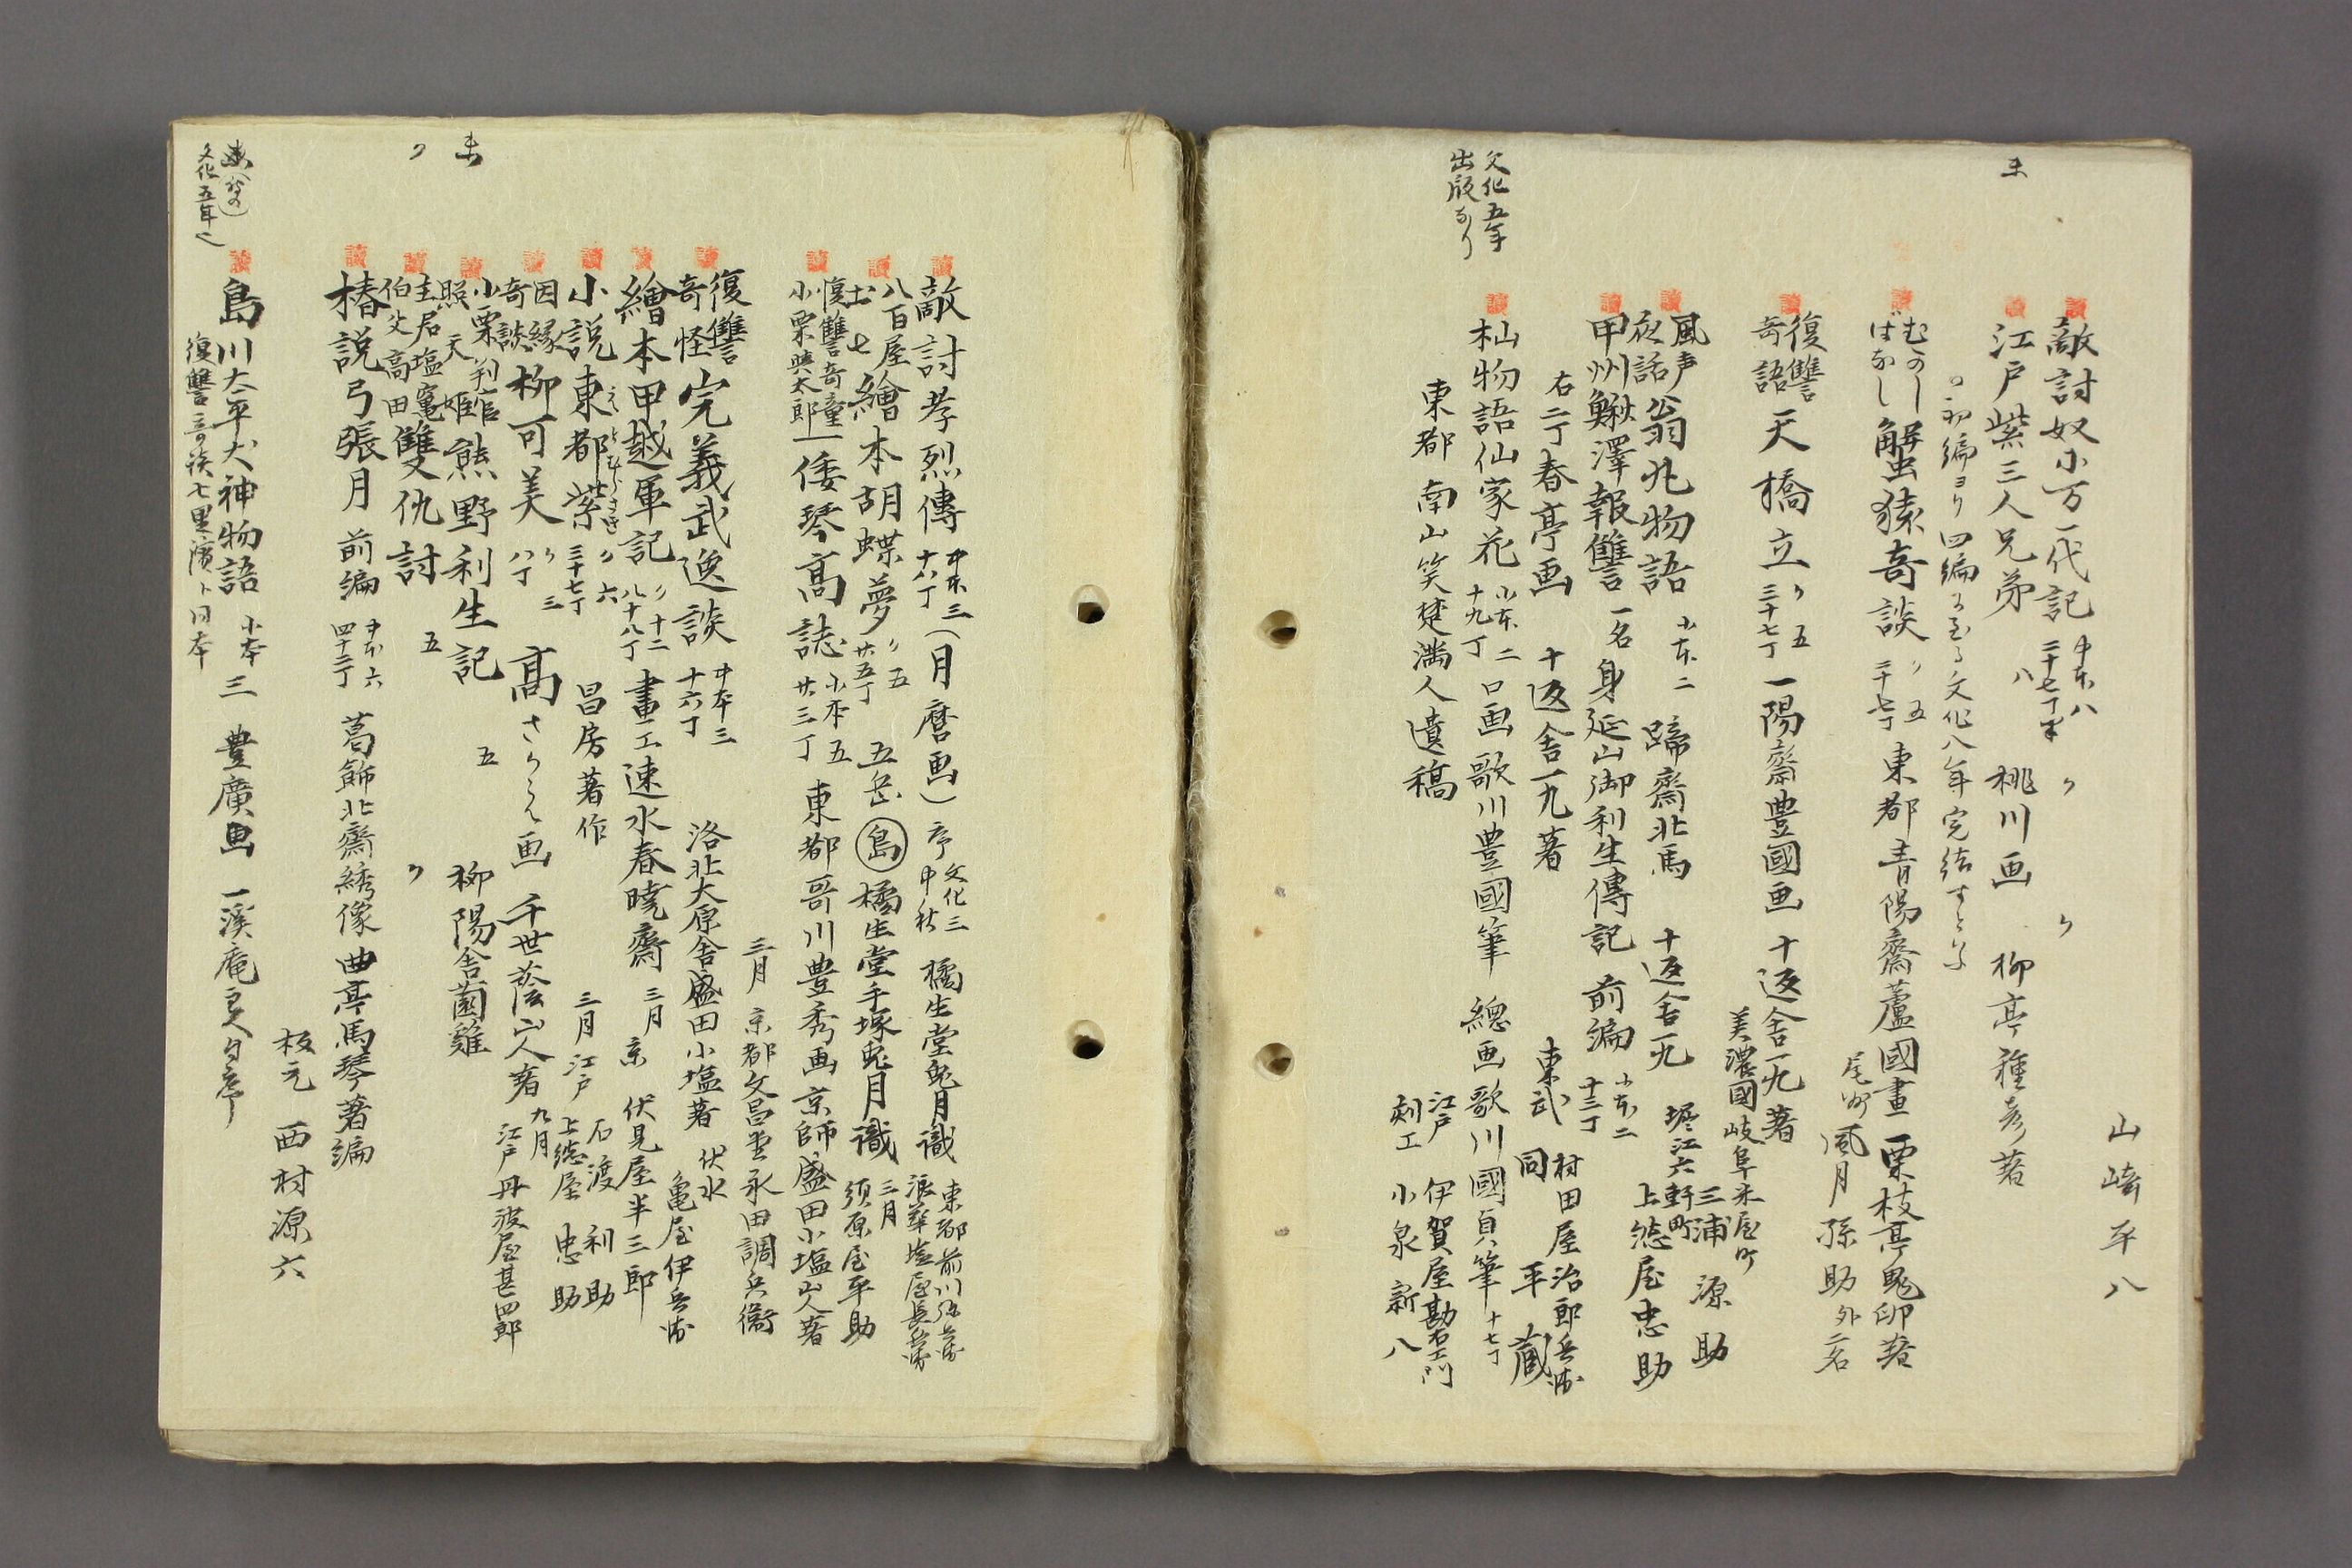 山崎平八
敵討奴小万一代記 中本八 二十七丁半 〃 〃
未
江戸紫三人兄弟 八 桃川画 柳亭種彦著
初編ヨリ四編に至る文化八年完結すといふ
むかしはなし 蟹猿奇談 〃五 二十七丁 東都青陽齋蘆國畫 栗枝亭鬼卵著
尾州 風月孫助 外二名
復讐奇語 天橋立 〃五 三十七丁 一陽齋豊國画 十返舎一九著
美濃國岐阜米屋町 三浦源助
風声夜話 翁丸物語 小本二 蹄齋北馬 十返舎一九 堀江六軒町 上総屋忠助
甲州鰍澤報讐 一名身延山御利生傳記 前編 小本二 十三丁
右二丁春亭画 十返舎一九著 東武 村田屋治郎兵衛 同平蔵
文化五年出版なり
杣物語仙家花 小本二 十九丁 口画歌川豊國筆 總画歌川國貞筆 十七丁
東都南山笑楚満人遺稿 江戸 伊賀屋勘右エ門 刻工 小泉新八
敵討孝烈傳 中本三 十八丁 (月麿画) 序文化三中秋 橘生堂兎月識 東都前川弥兵衛 浪華塩屋長兵衛
八百屋お七 繪本胡蝶夢 〃五 廿五丁 五岳(島) 橘生堂手塚兎月識 三月 須原屋平助
復讐奇童小栗與太郎 一倭琴高誌 小本五 廿三丁 東都哥川豊秀画 京師盛田小塩山人著
三月 京都文昌堂永田調兵衛
復讐奇怪 完義武逸談 中本三 十六丁 洛北大原舎盛田小塩著 伏水 亀屋伊兵衛
繪本甲越軍記 〃十二 八十八丁 畫工速水春暁齋 三月 京 伏見屋半三郎
小説東都紫 えどむらさき 〃六 三十七丁 昌房著作 三月 江戸 石渡利助 上総屋忠助
未
因縁奇談 柳可美 〃三 八丁 高さから画 千世蔭山人著 九月 江戸 丹波屋甚四郎
小栗判官照天姫 熊野利生記 五 柳陽舎薗雞
〃
主君塩竃伯父高田 雙仇討 五 〃
椿説弓張月 前編 中本六 四十二丁 葛飾北齋綉像 曲亭馬琴著編
板元 西村源六
島川太平犬神物語 小本三 豊廣画 一溪庵市井序
文化五年也
復讐奇談七里濱ト同本